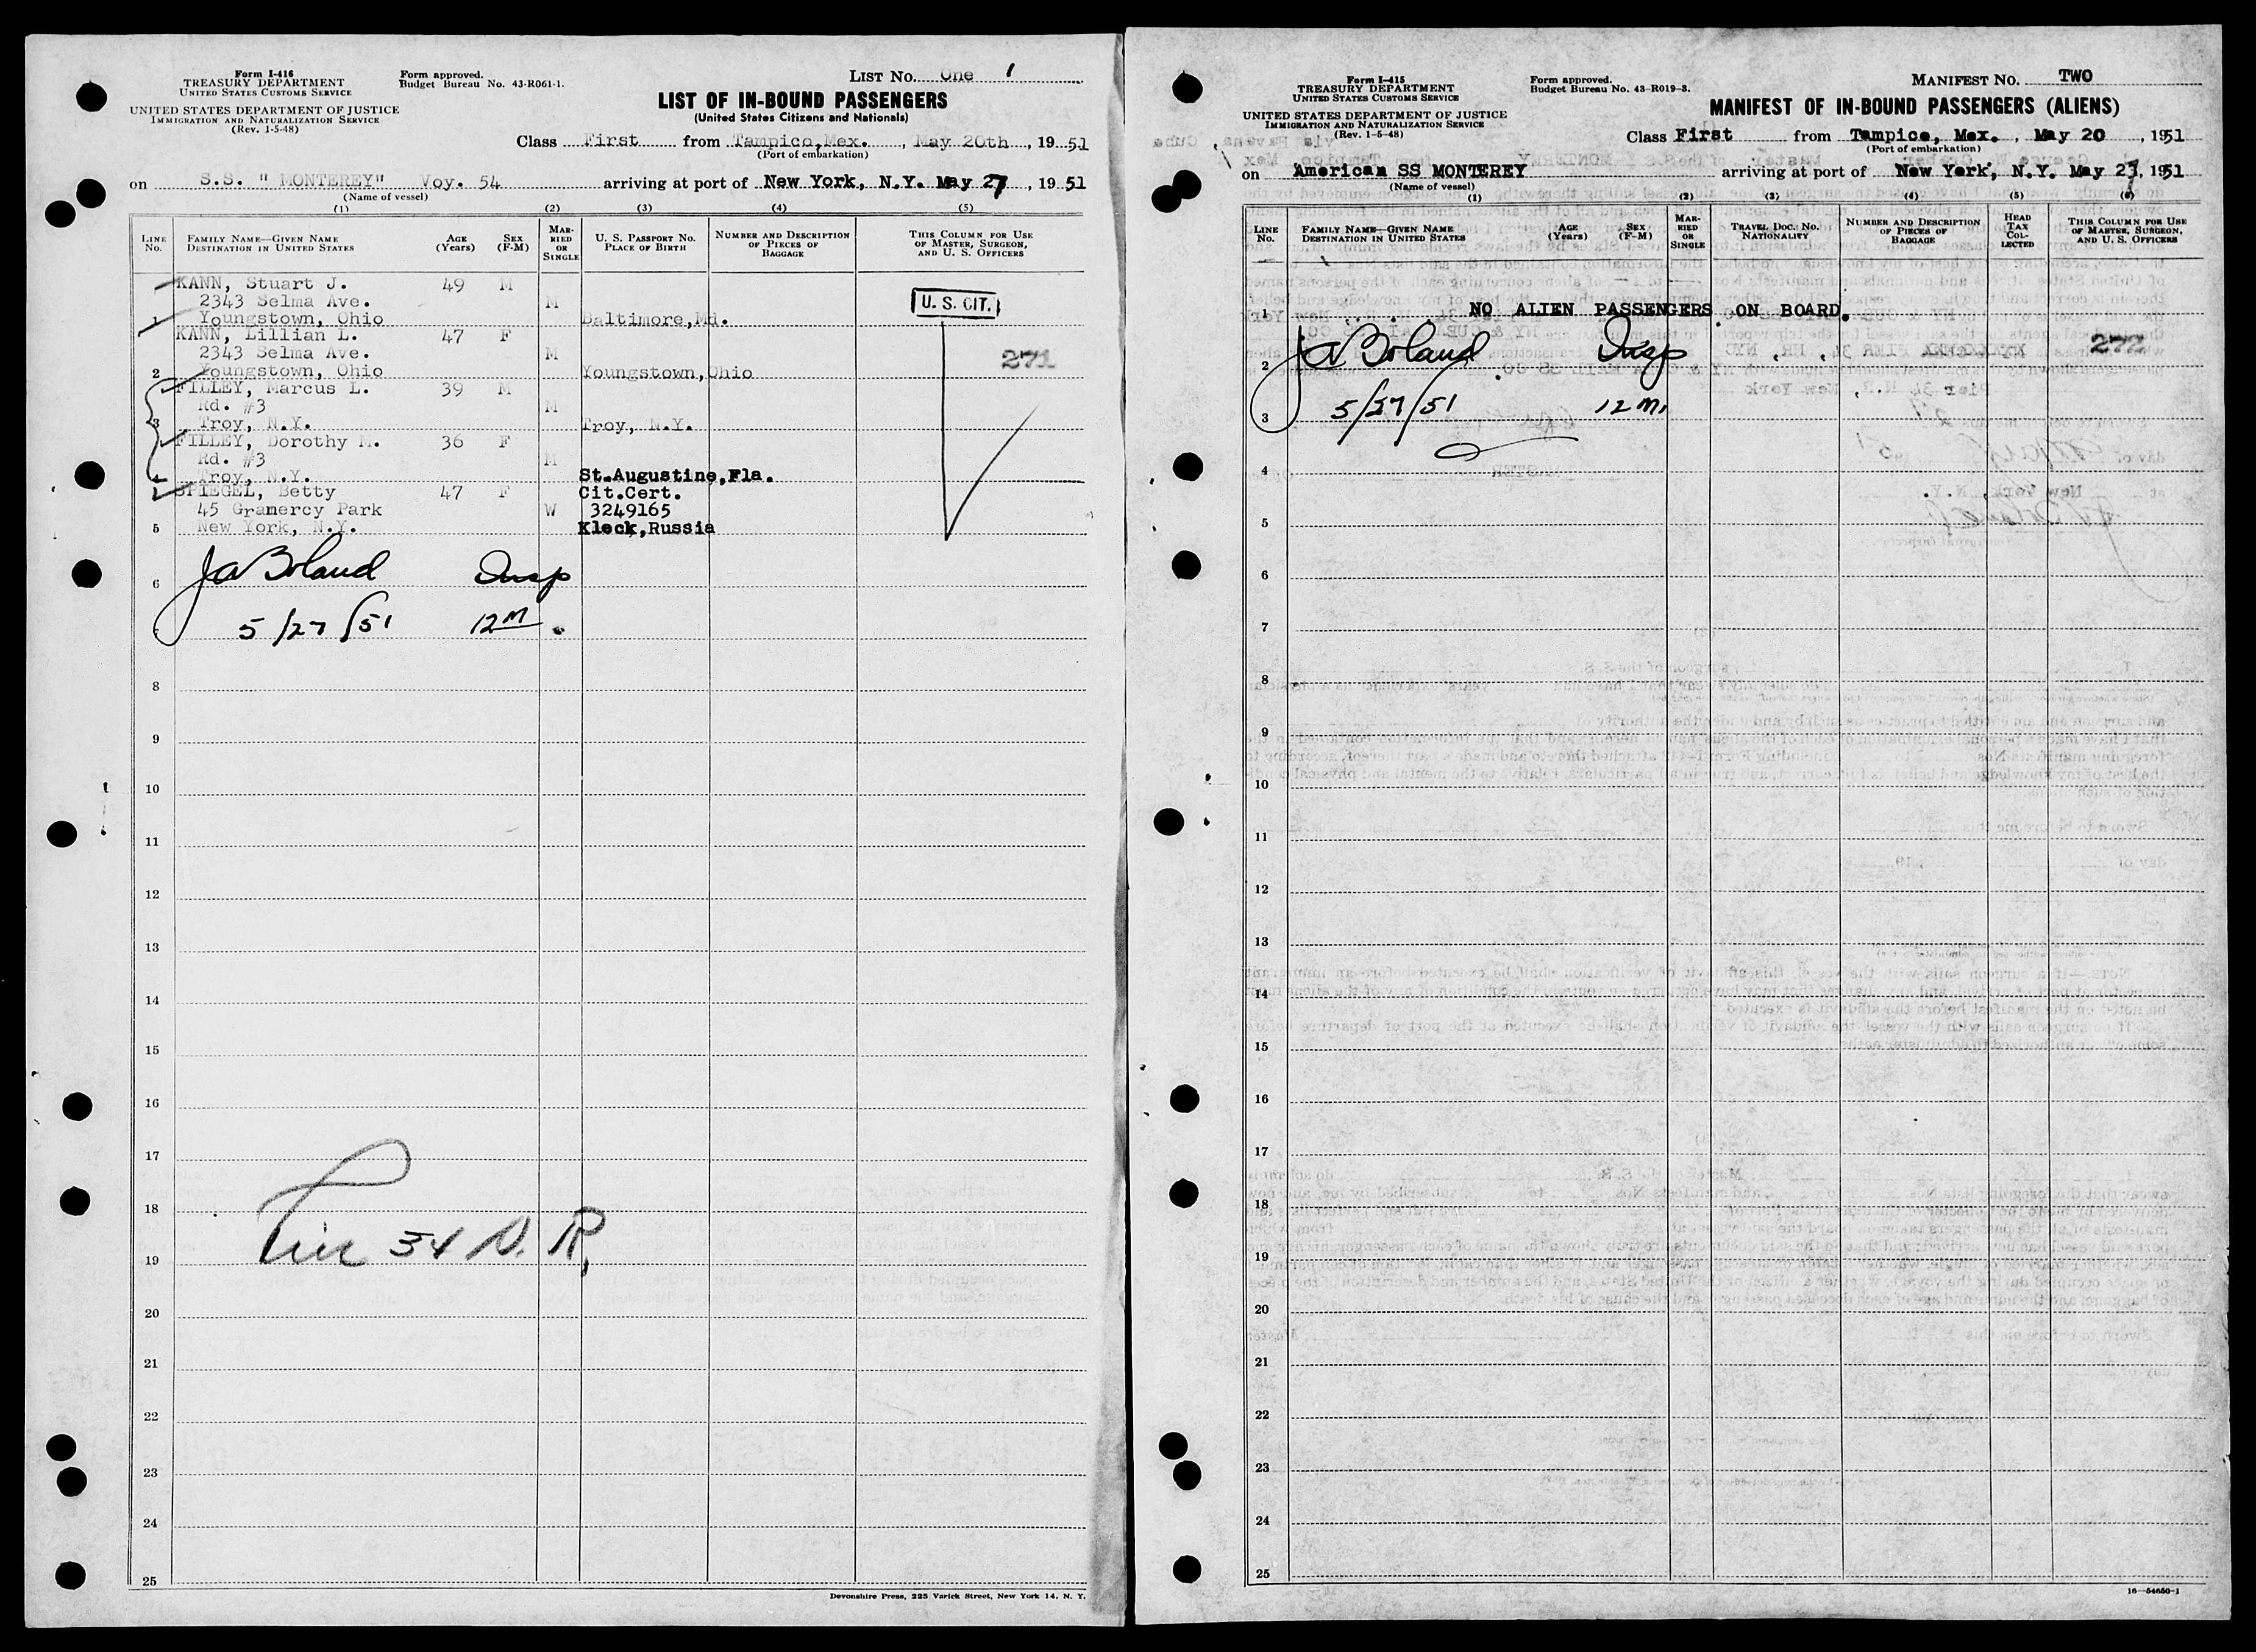 Form I-416
TREASURY DEPARTMENT
UNITED STATES CUSTOMS SERVICE
UNITED STATES DEPARTMENT OF JUSTICE
IMMIGRATION AND NATURALIZATION SERVICE
(Rev. 1-5-48)
Form approved.
Budget Bureau No. 43-R061-1.
LIST NO. One 1
LIST OF IN-BOUND PASSENGERS
(United States Citizens and Nationals)
Class First from Tampico, Mex. , May 20th , 19 51
(Port of embarkation)
on S.S. "MONTEREY" Voy. 54 arriving at port of New York, N.Y. May 27 , 19 51
(Name of vessel)
(1) (2) (3) (4) (5)
LINE NO. FAMILY NAME—GIVEN NAME DESTINATION IN UNITED STATES AGE (Years) SEX (F-M) MARRIED OR SINGLE U. S. PASSPORT NO. PLACE OF BIRTH NUMBER AND DESCRIPTION OF PIECES OF BAGGAGE THIS COLUMN FOR USE OF MASTER, SURGEON, AND U. S. OFFICERS
KANN, Stuart J. 49 M
2343 Selma Ave. M U. S. CIT.
1 Youngstown, Ohio Baltimore, Md.
KANN, Lillian L. 47 F
2343 Selma Ave. M 271
2 Youngstown, Ohio Youngstown, Ohio
FILLEY, Marcus L. 39 M
Rd. #3 M
3 Troy, N.Y. Troy, N.Y.
FILLEY, Dorothy M. 36 F
Rd. #3 M
4 Troy, N.Y. St.Augustine, Fla.
SPIEGEL, Betty 47 F Cit.Cert.
45 Gramercy Park W 3249165
5 New York, N.Y. Kleck, Russia
6 JA Boland Insp
5/27/51 12 M
8
9
10
11
12
13
14
15
16
17
18
19 Pier 34 N. R.
20
21
22
23
24
25
Devonshire Press, 225 Varick Street, New York 14, N. Y.
Form I-415
TREASURY DEPARTMENT
UNITED STATES CUSTOMS SERVICE
UNITED STATES DEPARTMENT OF JUSTICE
IMMIGRATION AND NATURALIZATION SERVICE
(Rev. 1-5-48)
Form approved.
Budget Bureau No. 43-R019-3.
MANIFEST NO. TWO
MANIFEST OF IN-BOUND PASSENGERS (ALIENS)
Class First from Tampico, Mex. , May 20 , 1951
(Port of embarkation)
on American SS MONTEREY arriving at port of New York, N.Y. May 27, 1951
(Name of vessel)
(1) (2) (3) (4) (5) (6)
LINE NO. FAMILY NAME—GIVEN NAME DESTINATION IN UNITED STATES AGE (Years) SEX (F-M) MARRIED OR SINGLE TRAVEL DOC. NO. NATIONALITY NUMBER AND DESCRIPTION OF PIECES OF BAGGAGE HEAD TAX COLLECTED THIS COLUMN FOR USE OF MASTER, SURGEON, AND U. S. OFFICERS
1 NO ALIEN PASSENGERS ON BOARD.
2 JA Boland Insp 272
3 5/27/51 12 M.
4
5
6
7
8
9
10
11
12
13
14
15
16
17
18
19
20
21
22
23
24
25
16—54650-1